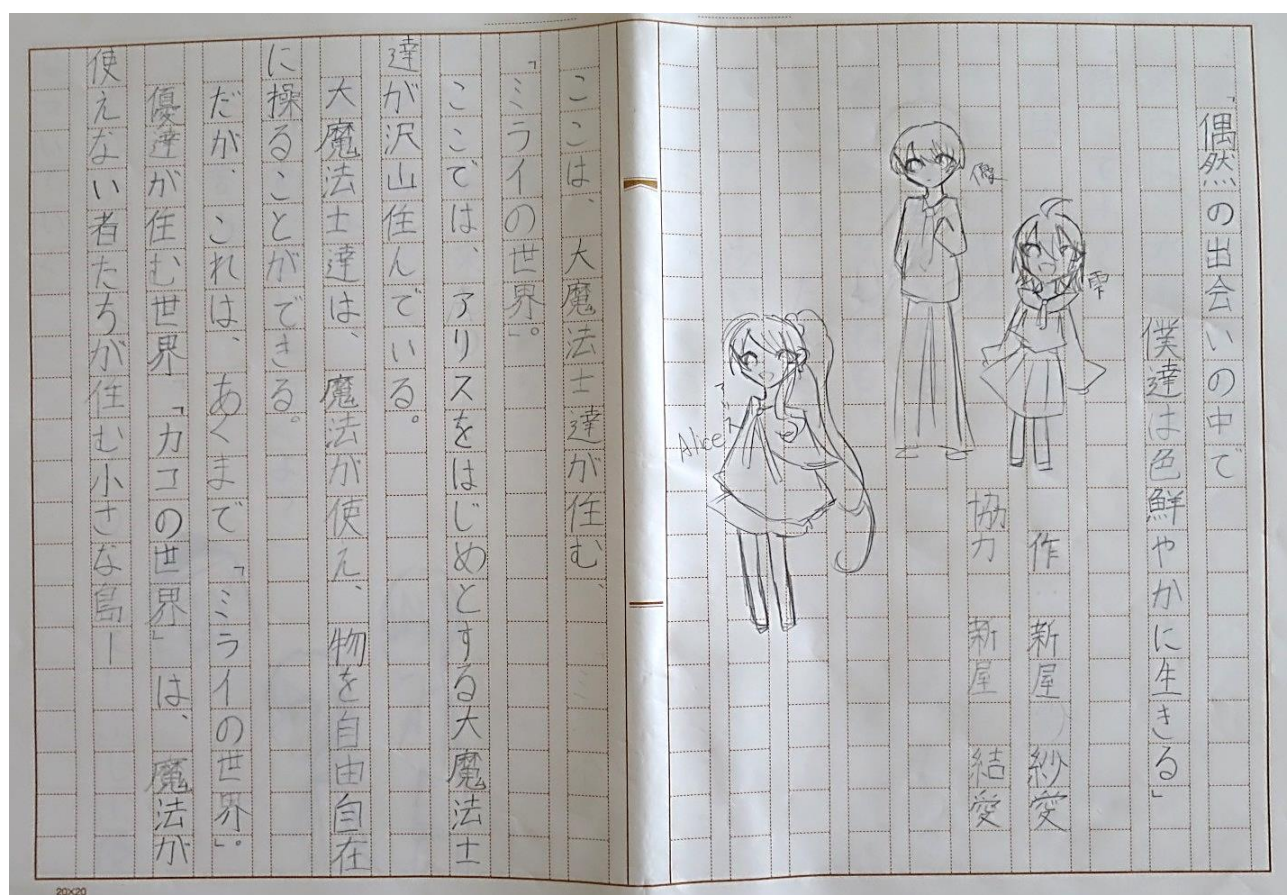 「偶然の出会いの中で
僕達は色鮮やかに生きる」
作 新屋 紗愛
協力 新屋 結愛
雫
優
アリス
Alice
ここは、大魔法士達が住む、
「ミライの世界」。
ここでは、アリスをはじめとする大魔法士
達が沢山住んでいる。
大魔法士達は、魔法が使え、物を自由自在
に操ることができる。
だが、これは、あくまで「ミライの世界」。
優達が住む世界「カコの世界」は、魔法が
使えない者たちが住む小さな島ー
20×20